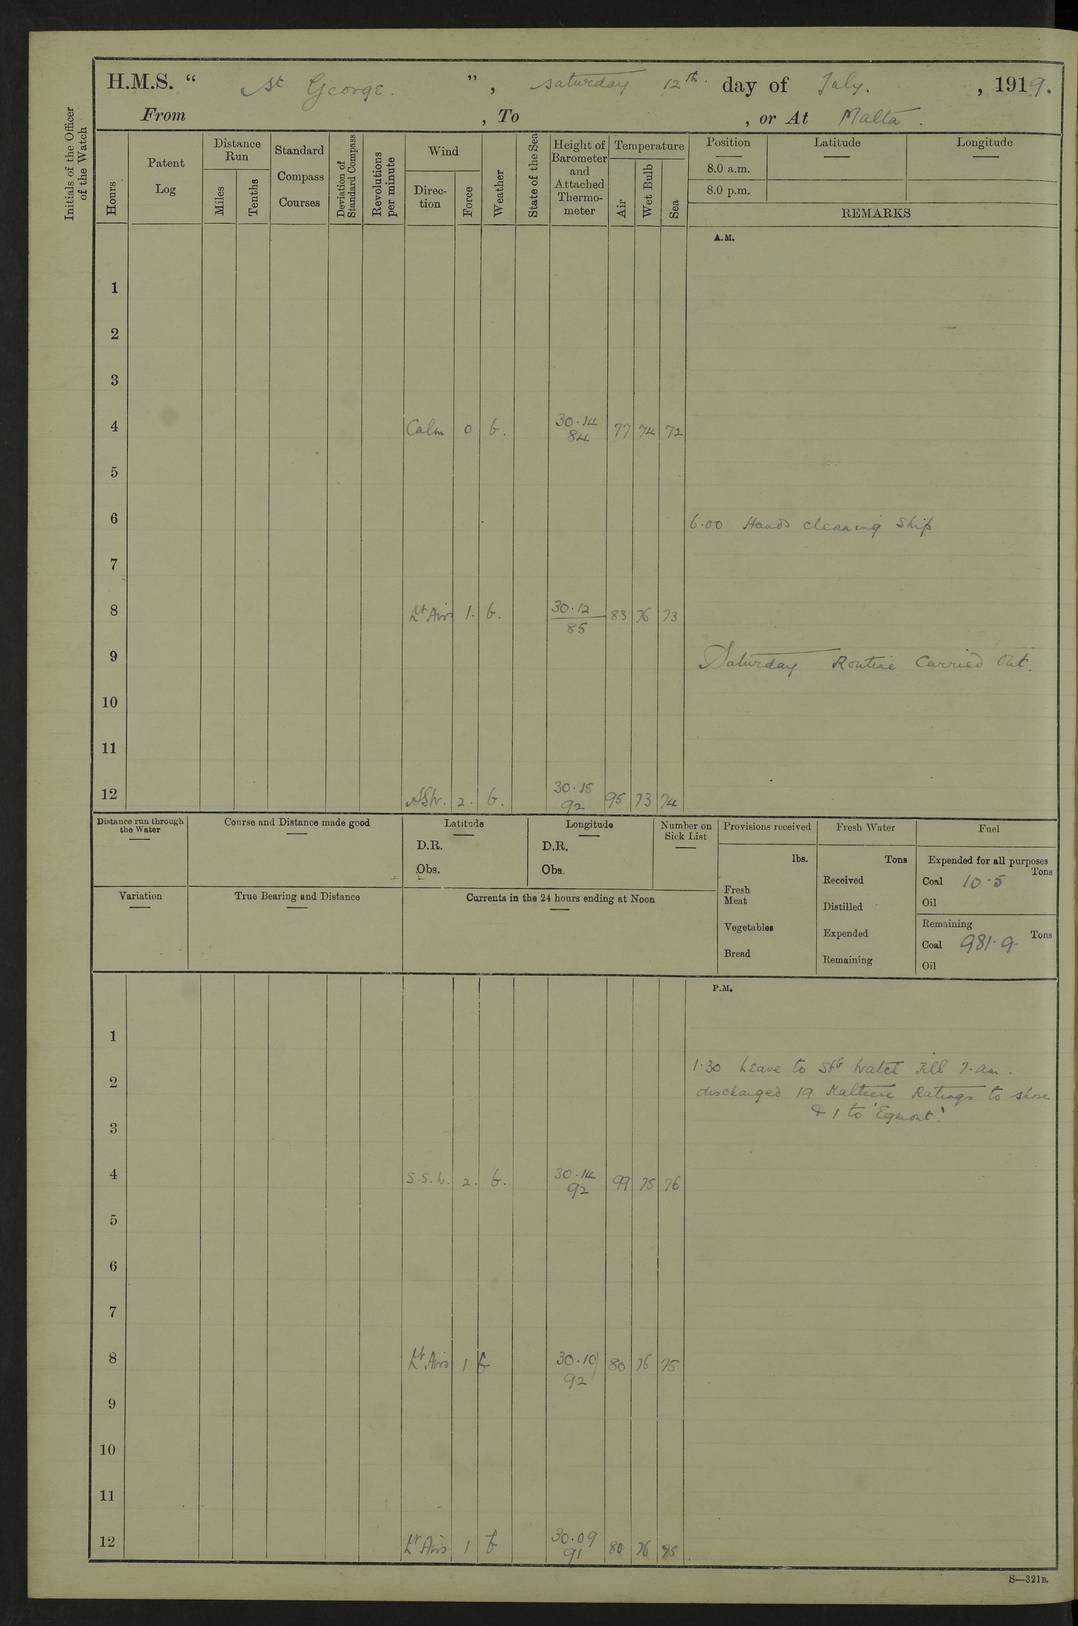 H.M.S. “ St George. ”, Saturday 12th. day of July. , 1919.
From , To , or At Malta .
Initials of the Officer of the Watch
Hours
Patent Log
Distance Run
Miles
Tenths
Standard Compass Courses
Deviation of Standard Compass
Revolutions per minute
Wind
Direction
Force
Weather
State of the Sea
Height of Barometer and Attached Thermometer
Temperature
Air
Wet Bulb
Sea
Position Latitude Longitude
8.0 a.m.
8.0 p.m.
REMARKS
A.M.
1
2
3
4 Calm 0 b. 30.14 84 77 74 72
5
6 6.00 Hands cleaning Ship
7
8 Lt Airs 1. b. 30.12 85 83 76 73
9 Saturday Routine Carried Out.
10
11
12 2. b. 30.15 92 95 73 74
Distance run through the Water
Course and Distance made good
Latitude
D.R.
Obs.
Longitude
D.R.
Obs.
Number on Sick List
Provisions received
lbs.
Fresh Meat
Vegetables
Bread
Fresh Water
Tons
Received
Distilled
Expended
Remaining
Fuel
Expended for all purposes
Tons
Coal 10.5
Oil
Remaining
Tons
Coal 981.9
Oil
Variation
True Bearing and Distance
Currents in the 24 hours ending at Noon
P.M.
1
1.30 Leave to Stb Watch Till 7. am.
2 discharged 19 Maltese Ratings to shore
& 1 to 'Egmont'.
3
4 2. b. 30.14 92 99 75 76
5
6
7
8 Lt Airs 1 b 30.10 92 80 76 75
9
10
11
12 Lt Airs 1 b 30.09 91 80 76
S—321B.